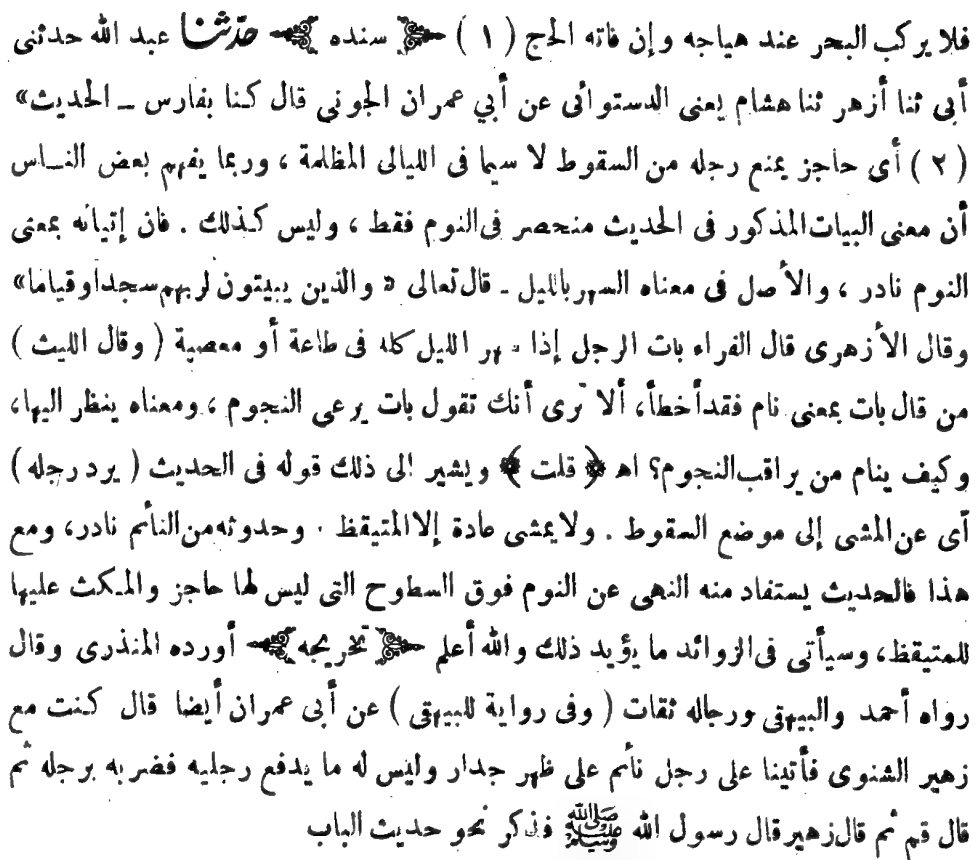 فلا يركب البحر عند هياجه وإن فاته الحج (١) ﴿ سنده ﴾ حدثنا عبد الله حدثنى
أبى ثنا أزهر ثنا هشام يعنى الدستوائى عن أبي عمران الجونى قال كنا بفارس ــ الحديث»
(٢) أى حاجز يمنع رجله من السقوط لا سيما فى الليالى المظلمة ، وربما يفهم بعض النــاس
أن معنى البيات المذكور فى الحديث منحصر فى النوم فقط ، وليس كـذلك . فان إتيانه بمعنى
النوم نادر ، والأصل فى معناه السهر بالليل ـ قال تعالى « والذين يبيتون لربهم سجدا وقياما»
وقال الأزهرى قال الفراء بات الرجل إذا سهر الليل كله فى طاعة أو معصية ( وقال الليث )
من قال بات بمعنى نام فقد أخطأ، ألا ترى أنك تقول بات يرعى النجوم ، ومعناه ينظر اليها،
وكيف ينام من يراقب النجوم؟ اهـ ﴿ قلت ﴾ ويشير إلى ذلك قوله فى الحديث ( يرد رجله )
أى عن المشى إلى موضع السقوط . ولا يمشى عادة إلا المتيقظ . وحدوثه من النائم نادر، ومع
هذا فالحديث يستفاد منه النهى عن النوم فوق السطوح التى ليس لها حاجز والمـكث عليها
للمتيقظ، وسيأتى فى الزوائد ما يؤيد ذلك والله أعلم ﴿ تخريجه ﴾ أورده المنذرى وقال
رواه أحمد والبيهقى ورجاله ثقات ( وفى رواية للبيهقى ) عن أبى عمران أيضا قال كنت مع
زهير الشنوى فأتينا على رجل نائم على ظهر جدار وليس له ما يدفع رجليه فضربه برجله ثم
قال قم ثم قال زهير قال رسول الله ﷺ فذكر نحو حديث الباب